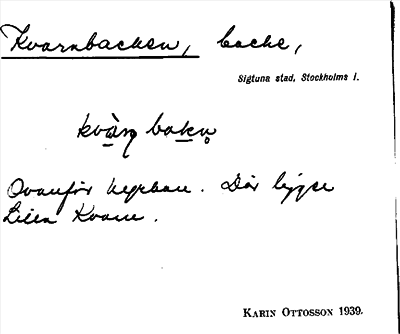 Kvarnbacken, backe,
Sigtuna stad, Stockholms l.
Ovanför kyrkan. Där ligger
Lilla Kvarn.
KARIN OTTOSSON 1939.